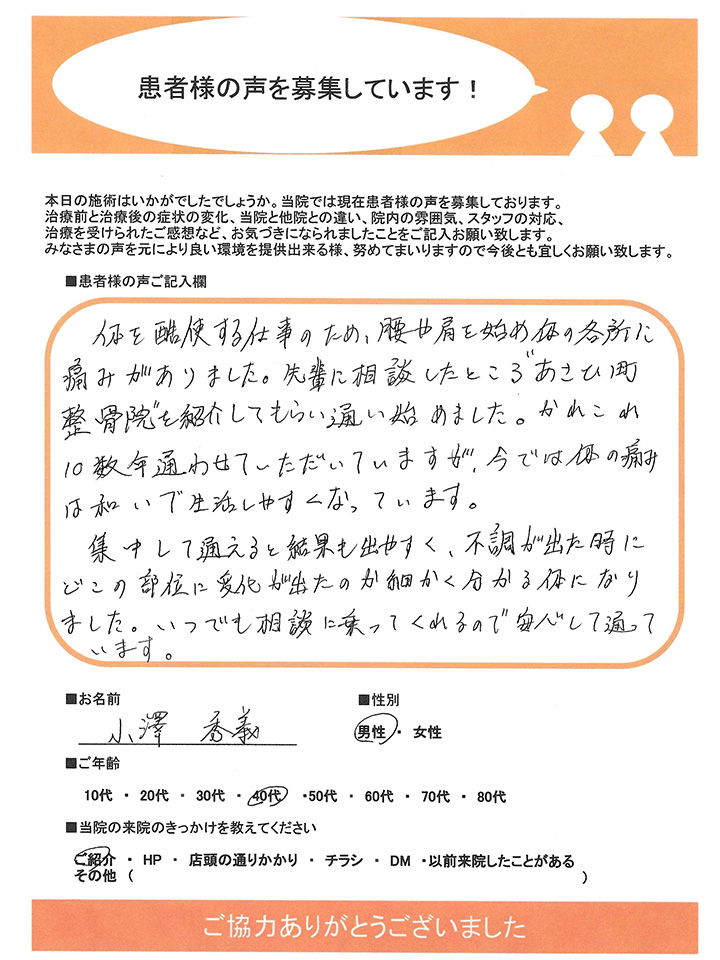 患者様の声を募集しています！
本日の施術はいかがでしたでしょうか。当院では現在患者様の声を募集しております。
治療前と治療後の症状の変化、当院と他院との違い、院内の雰囲気、スタッフの対応、
治療を受けられたご感想など、お気づきになられましたことをご記入お願い致します。
みなさまの声を元により良い環境を提供出来る様、努めてまいりますので今後とも宜しくお願い致します。
■患者様の声ご記入欄
体を酷使する仕事のため、腰や肩を始め体の各所に
痛みがありました。先輩に相談したところ"あさひ町
整骨院"を紹介してもらい通い始めました。かれこれ
10数年通わせていただいていますが、今では体の痛み
は和いで生活しやすくなっています。
集中して通えると結果も出やすく、不調が出た時に
どこの部位に変化が出たのか細かく分かる体になり
ました。いつでも相談に乗ってくれるので安心して通って
います。
■お名前 ■性別
小澤 秀義 男性・女性
■ご年齢
10代・20代・30代・40代・50代・60代・70代・80代
■当院の来院のきっかけを教えてください
ご紹介・HP・店頭の通りかかり・チラシ・DM・以前来院したことがある
その他（ ）
ご協力ありがとうございました